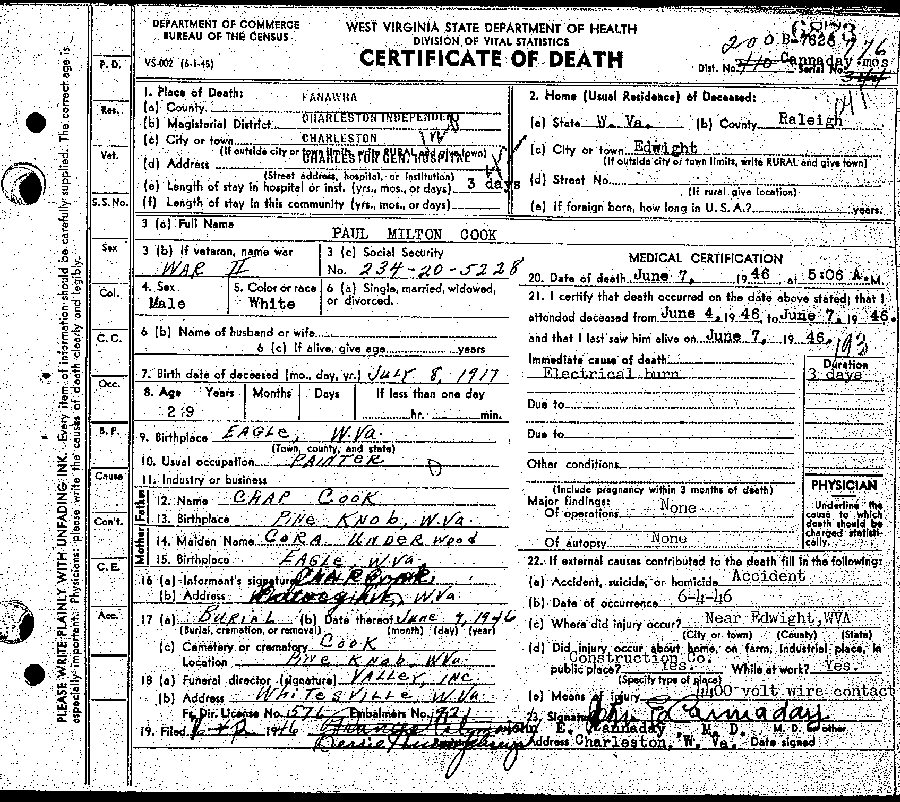 DEPARTMENT OF COMMERCE
BUREAU OF THE CENSUS
WEST VIRGINIA STATE DEPARTMENT OF HEALTH
DIVISION OF VITAL STATISTICS
CERTIFICATE OF DEATH
VS-002 (6-1-45)
Dist. No. Cannaday mos
Serial No.
PLEASE WRITE PLAINLY WITH UNFADING INK. Every item of information should be carefully supplied. The correct age is
especially important. Physicians: please write the causes of death clearly and legibly.
P. D.
Res.
Vet.
S. S. No.
Sex
Col.
C. C.
Occ.
B. P.
Cause
Con't.
C. E.
Acc.
1. Place of Death:
(a) County KANAWHA
(b) Magisterial District CHARLESTON INDEPENDENT
(c) City or town CHARLESTON
(If outside city or town limits, write RURAL and give town)
(d) Address CHARLESTON GEN. HOSPITAL
(Street address, hospital, or institution)
(e) Length of stay in hospital or inst. (yrs., mos., or days) 3 days
(f) Length of stay in this community (yrs., mos., or days)
2. Home (Usual Residence) of Deceased:
(a) State W. Va. (b) County Raleigh
(c) City or town Edwight
(If outside city or town limits, write RURAL and give town)
(d) Street No.
(If rural give location)
(e) if foreign born, how long in U. S. A.? years.
3 (a) Full Name
PAUL MILTON COOK
3 (b) If veteran, name war
WAR II
3 (c) Social Security
No. 234-20-5228
4. Sex
Male
5. Color or race
White
6 (a) Single, married, widowed,
or divorced.
6 (b) Name of husband or wife
6 (c) If alive, give age years
7. Birth date of deceased (mo., day, yr.) JULY 8, 1917
8. Age Years Months Days If less than one day
29 hr. min.
9. Birthplace EAGLE, W.Va.
(Town, county, and state)
10. Usual occupation PAINTER
11. Industry or business
Father
12. Name CHAP COOK
13. Birthplace Pine Knob, W.Va.
Mother
14. Maiden Name CORA UNDERWOOD
15. Birthplace EAGLE W.Va.
16 (a) Informant's signature CHAP COOK
(b) Address W.Va
17 (a) BURIAL (b) Date thereof June 9, 1946
(Burial, cremation, or removal) (month) (day) (year)
(c) Cemetery or crematory COOK
Location Pine Knob, W.Va.
18 (a) Funeral director (signature) VALLEY, INC.
(b) Address WHITESVILLE W.Va.
Fn. Dir. License No. 576 Embalmers No. 921
19. Filed 1946
MEDICAL CERTIFICATION
20. Date of death June 7, 1946, at 5:06 A. M.
21. I certify that death occurred on the date above stated; that I
attended deceased from June 4, 1946, to June 7, 1946.
and that I last saw him alive on June 7, 1946.
193
Immediate cause of death
Electrical burn
Duration
3 days
Due to
Due to
Other conditions
(Include pregnancy within 3 months of death)
Major findings:
Of operations None
Of autopsy None
PHYSICIAN
Underline the
cause to which
death should be
charged statisti-
cally.
22. If external causes contributed to the death fill in the following:
(a) Accident, suicide, or homicide Accident
(b) Date of occurrence 6-4-46
(c) Where did injury occur? Near Edwight, WVA
(City or town) (County) (State)
(d) Did injury occur about home, on farm, industrial place, in
Construction Co.
public place? Yes. While at work? Yes.
(Specify type of place)
(e) Means of injury volt wire contact
23. Signature Cannaday
John E. Cannaday, M. D. M. D. or other
Address Charleston, W. Va. Date signed